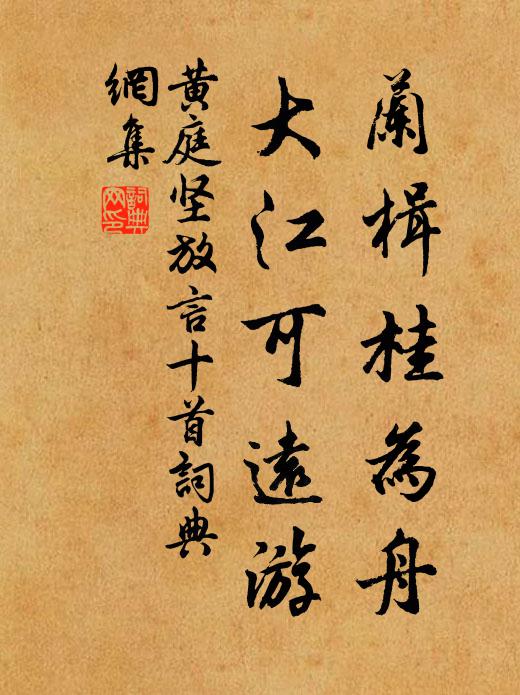 蘭楫桂為舟
大江可遠游
黃庭坚放言十首詞典
網集
詞典
网印